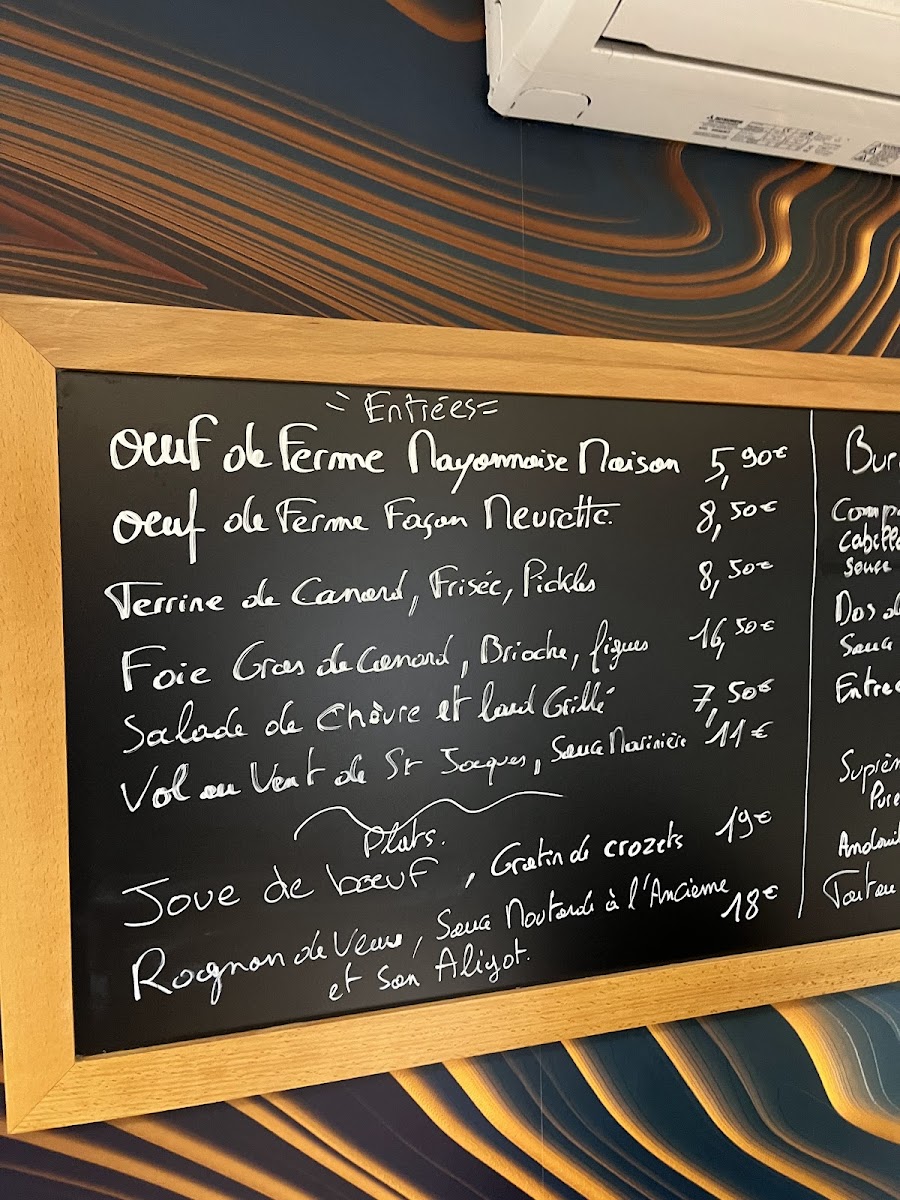 Entrées
oeuf de Ferme Mayonnaise Maison 5,90€
oeuf de Ferme Façon Meurette 8,50€
Terrine de Canard, Frisée, Pickles 8,50€
Foie Gras de Canard, Brioche, figues 16,50€
Salade de Chèvre et lard Grillé 7,50€
Vol au Vent de St Jacques, Sauce Marinière 11€
Plats.
Joue de bœuf, Gratin de crozets 19€
Rognon de Veau, Sauce Moutarde à l'Ancienne 18€
et son Aligot.
Bur
Comp
cabill
sauce
Dos d
Sauce
Entrec
Suprêm
Pure
Andouil
Tartar